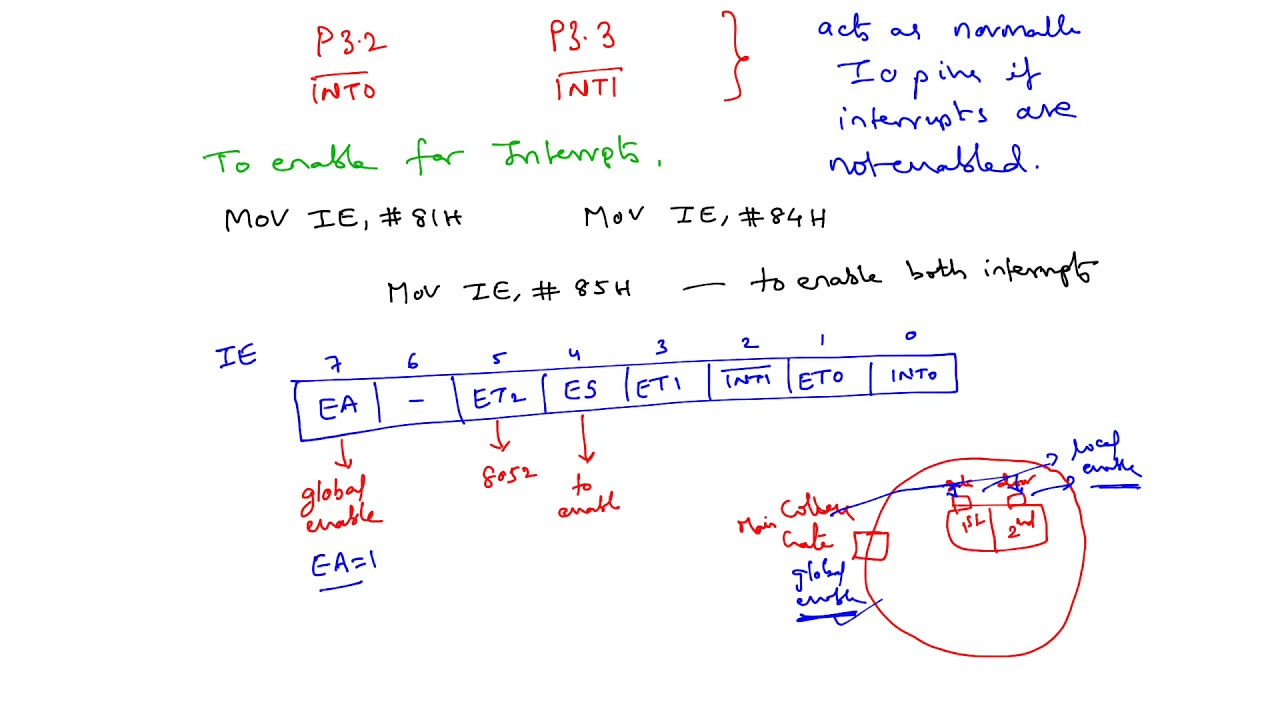 P3.2 P3.3
INT0 INT1
acts as normalle
IO pins if
interrupts are
not enabled.
To enable for Interrpts.
MOV IE, #81H MOV IE, #84H
MOV IE, #85H — to enable both interrupts
IE
7 6 5 4 3 2 1 0
EA - ET2 ES ET1 INT1 ET0 INT0
global
enable
EA=1
8052
to
enable
local
enable
1st 2nd
Main College
Gate
global
enable